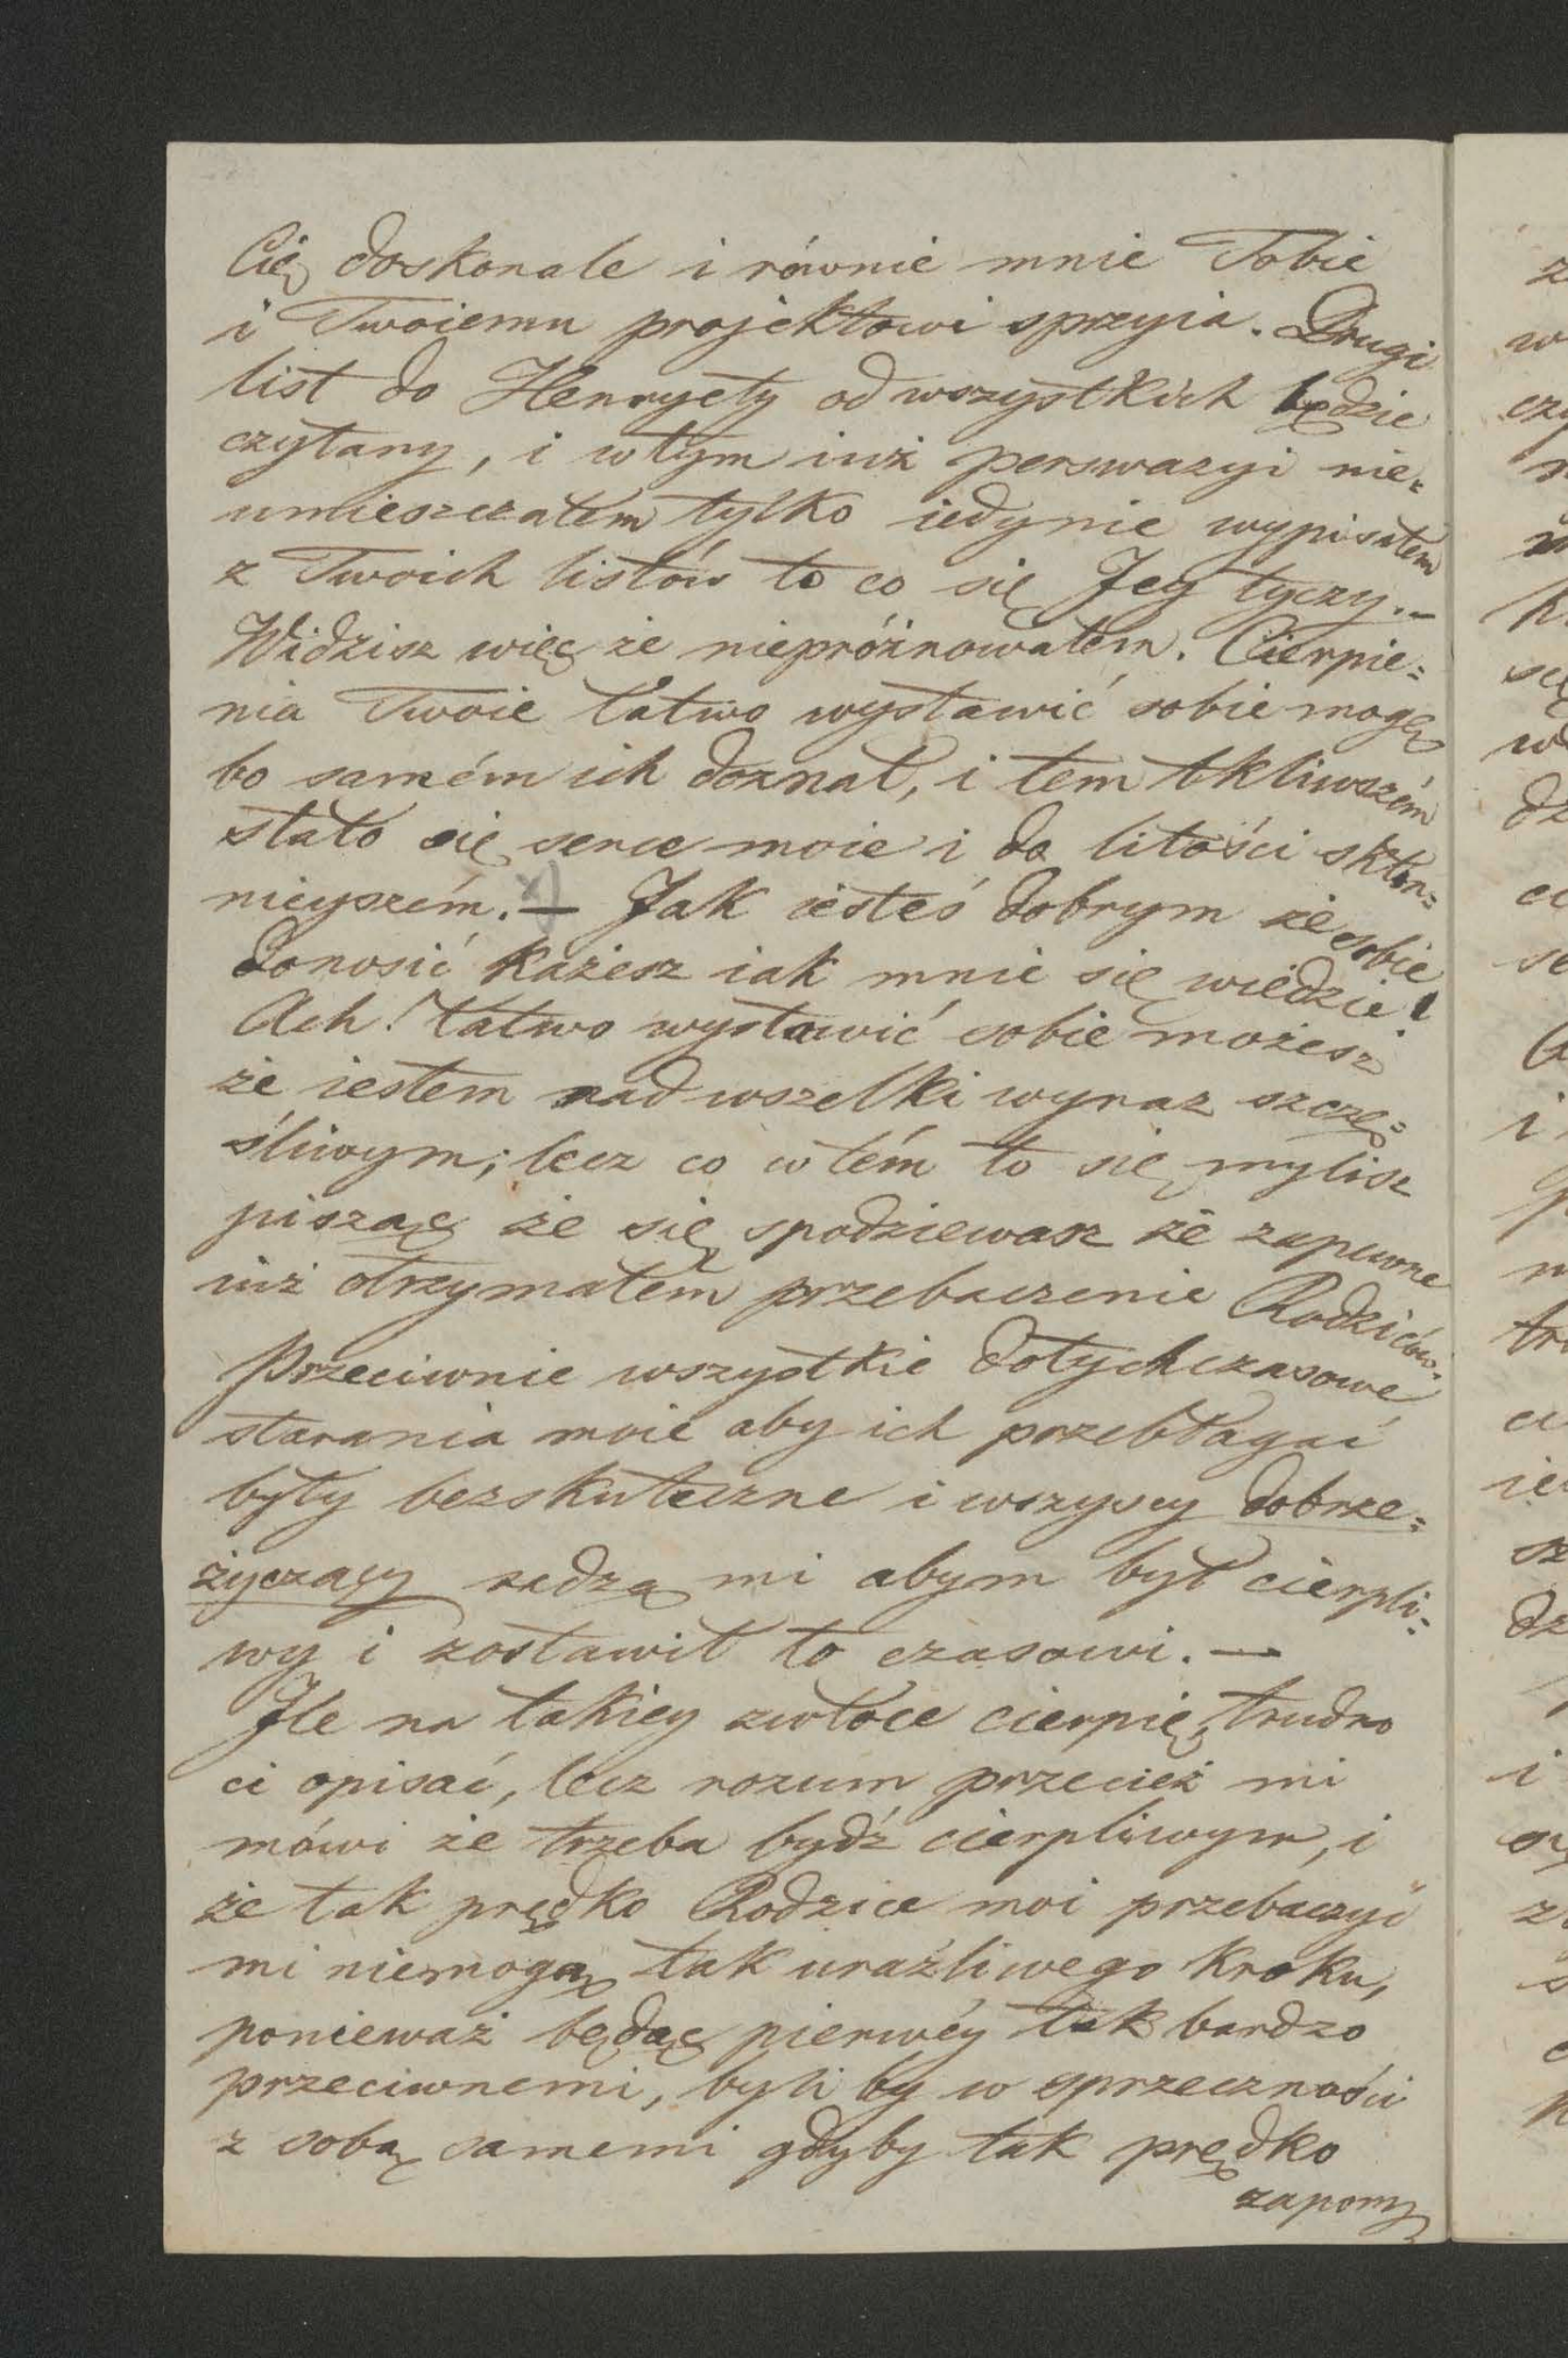 Cię doskonale i równie mnie Tobie
i Twoiemu projektowi sprzyia. Drugi
list do Henryety od wszystkich będzie
czytany, i w tym iuż perswazyi nie=
umieszczałem tylko iedynie wypisałem
z Twoich listów to co się Jey tyczy. –
Widzisz więc że niepróżnowałem. Cierpie=
nia Twoie łatwo wystawić sobie mogę
bo samém ich doznał, i tem tkliwszém
stało się serce moie i do litości skłon=
nieyszém. x) — Jak iesteś dobrym że sobie
donosić każesz iak mnie się wiedzie!
Ach! łatwo wystawić sobie możesz
że iestem nad wszelki wyraz szczę=
śliwym; lecz co w tém to się mylisz
pisząc że się spodziewasz że zapewne
iuż otrzymałem przebaczenie Rodziców.
Przeciwnie wszystkie dotychczasowe
starania moie aby ich przebłagać
były bezskuteczne i wszyscy dobrze=
życzący radzą mi abym był cierpli=
wy i zostawił to czasowi. —
Ile na takiey zwłoce cierpię, trudno
ci opisać, lecz rozum przecież mi
mówi że trzeba bydź cierpliwym, i
że tak prędko Rodzice moi przebaczyć
mi niemogą tak uraźliwego kroku,
ponieważ będąc pierwéy tak bardzo
przeciwnemi, byli by w sprzeczności
z sobą samemi gdyby tak prędko
zapom